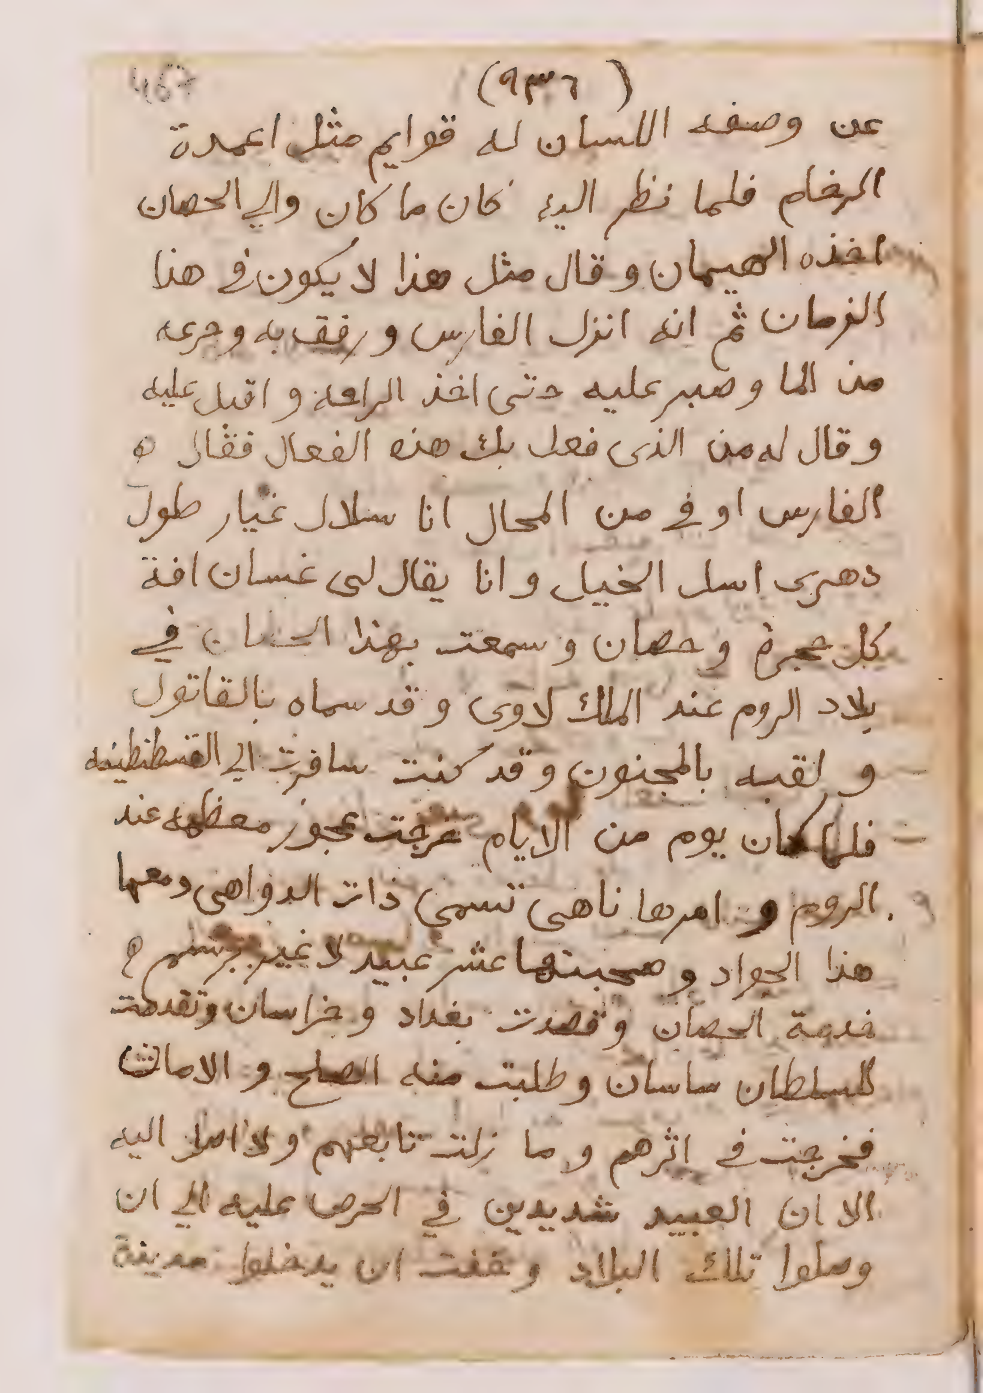 467
(٩٣٦)
عن وصفه اللسان له قوايم مثل اعمدة
الرخام فلما نظر اليه كان ما كان والي الحصان
اخذه الهيمان وقال مثل هذا لا يكون في هذا
الزمان ثم انه انزل الفارس ورفق به وجرعه
من الما وصبر عليه حتى اخذ الراحه واقبل عليه
وقال له من الذى فعل بك هذه الفعال فقال ه
الفارس اوفي من المحال انا سلال غيار طول
دهرى اسل الخيل وانا يقال لى غسان افة
كل حجرة وحصان وسمعت بهذا الحصان في
بلاد الروم عند الملك لاوى وقد سماه بالقاتول
ولقبه بالمجنون وقد كنت سافرت الي القسطنطينه
فلما كان يوم من الايام خرجت عجوز معظمه عند
الروم و امرها ناهى تسمى ذات الدواهى ومعها
هذا الجواد وصحبتها عشر عبيد لا غير برسم ه
خدمة الحصان وقصدت بغداد وخراسان وتقدمت
للسلطان ساسان وطلبت منه الصلح والامان
فخرجت في اثرهم وما زلت تابعهم ولا اصل اليه
الا ان العبيد شديدين في الحرص عليه الي ان
وصلوا تلك البلاد وخفت ان يدخلوا مدينة